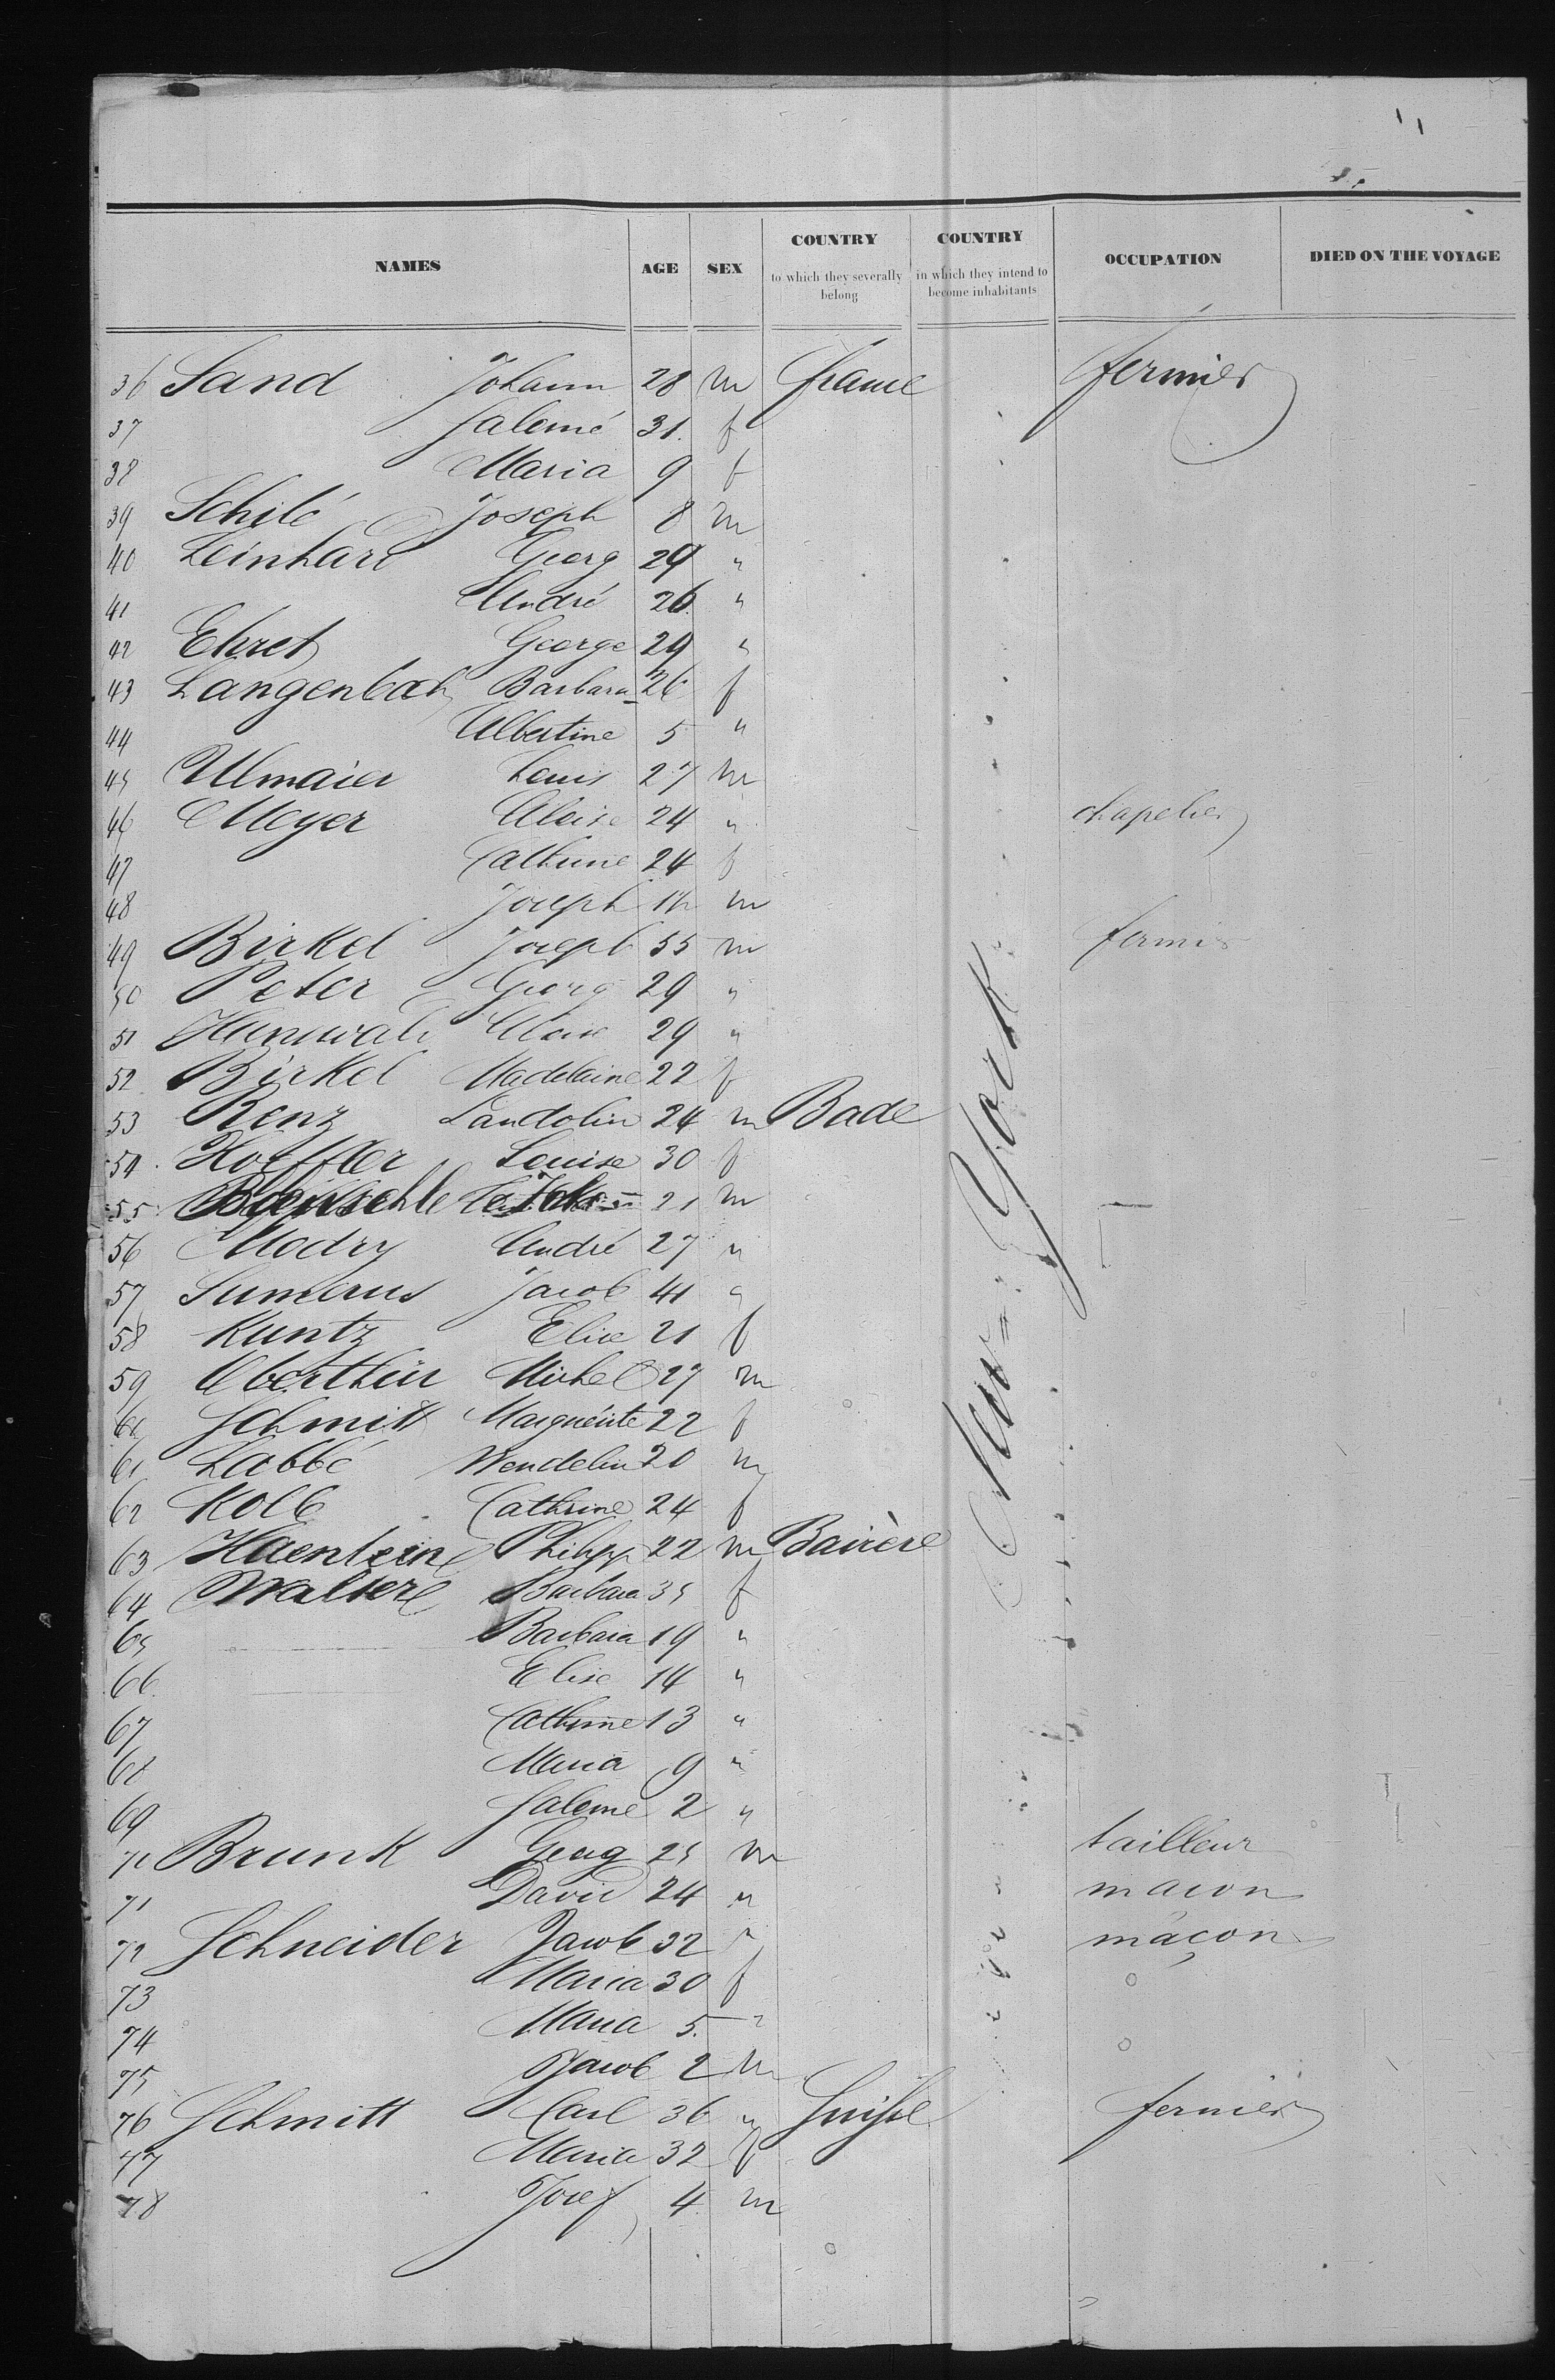 NAMES AGE SEX COUNTRY to which they severally belong COUNTRY in which they intend to become inhabitants OCCUPATION DIED ON THE VOYAGE
36 Sand Johann 28 m france fermier
37 Salomé 31. f
38 Maria 9 f
39 Schilé Joseph 8 m
40 Leinhard Georg 29 "
41 André 26. "
42 Ehret George 29 "
43 Langenbach Barbara 26 f
44 Albertine 5 "
45 Ulmaier Louis 27 m
46 Meyer Aloise 24 " chapelier
47 Cathrine 24 f
48 Joseph m
49 Birkel Joseph 55 m fermier
50 Peter Georg 29 "
51 Aloise 29 "
52 Birkel Madelaine 22 f
53 Renz Landolin 24 m Bade
54 Hoeffler Louise 30 f
55 21 m
56 Modry André 27 "
57 Jacob 41 "
58 Kuntz Elise 21 f
59 Oberthür Michel 27 m
60 Schmitt Marguérite 22 f
61 Labbé Wendelin 20 m
62 Kolb Cathrine 24 f
63 Haenlein Philipp 22 m Bavière
64 Walter Barbara 35 f
65 Barbara 19 "
66 Elise 14 "
67 Cathrine 13 "
68 Maria 9 "
69 Salome 2 "
70 Brunk Georg 25 m tailleur
71 David 24 " macon
72 Schneider Jacob 32 " maçon
73 Maria 30 f
74 Maria 5. "
75 Jacob 2 m
76 Schmitt Carl 36 " Suisse fermier
77 Maria 32 f
78 Josef 4 m
New-York